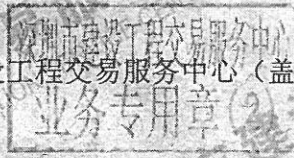 深圳市建设工程交易服务中心
工程交易服务中心（盖
业务专用章（2）